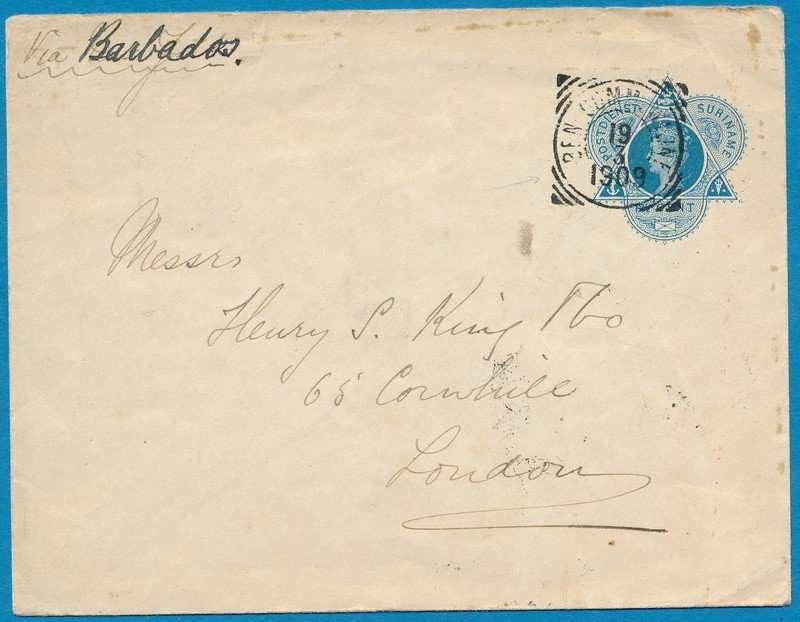 Via Barbados.
POSTDIENST SURINAME
19
1909
Messrs
Henry S. King & Co
65 Cornhill
London